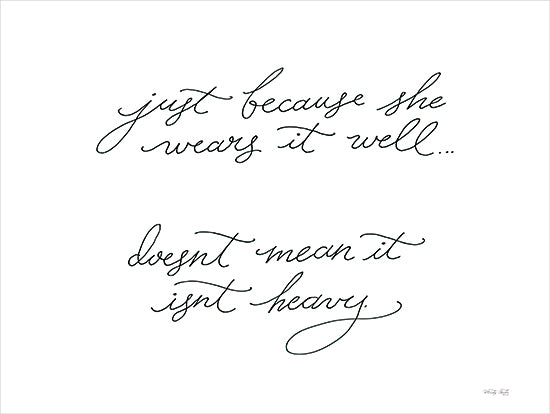 just because she
wears it well...
doesnt mean it
isnt heavy.